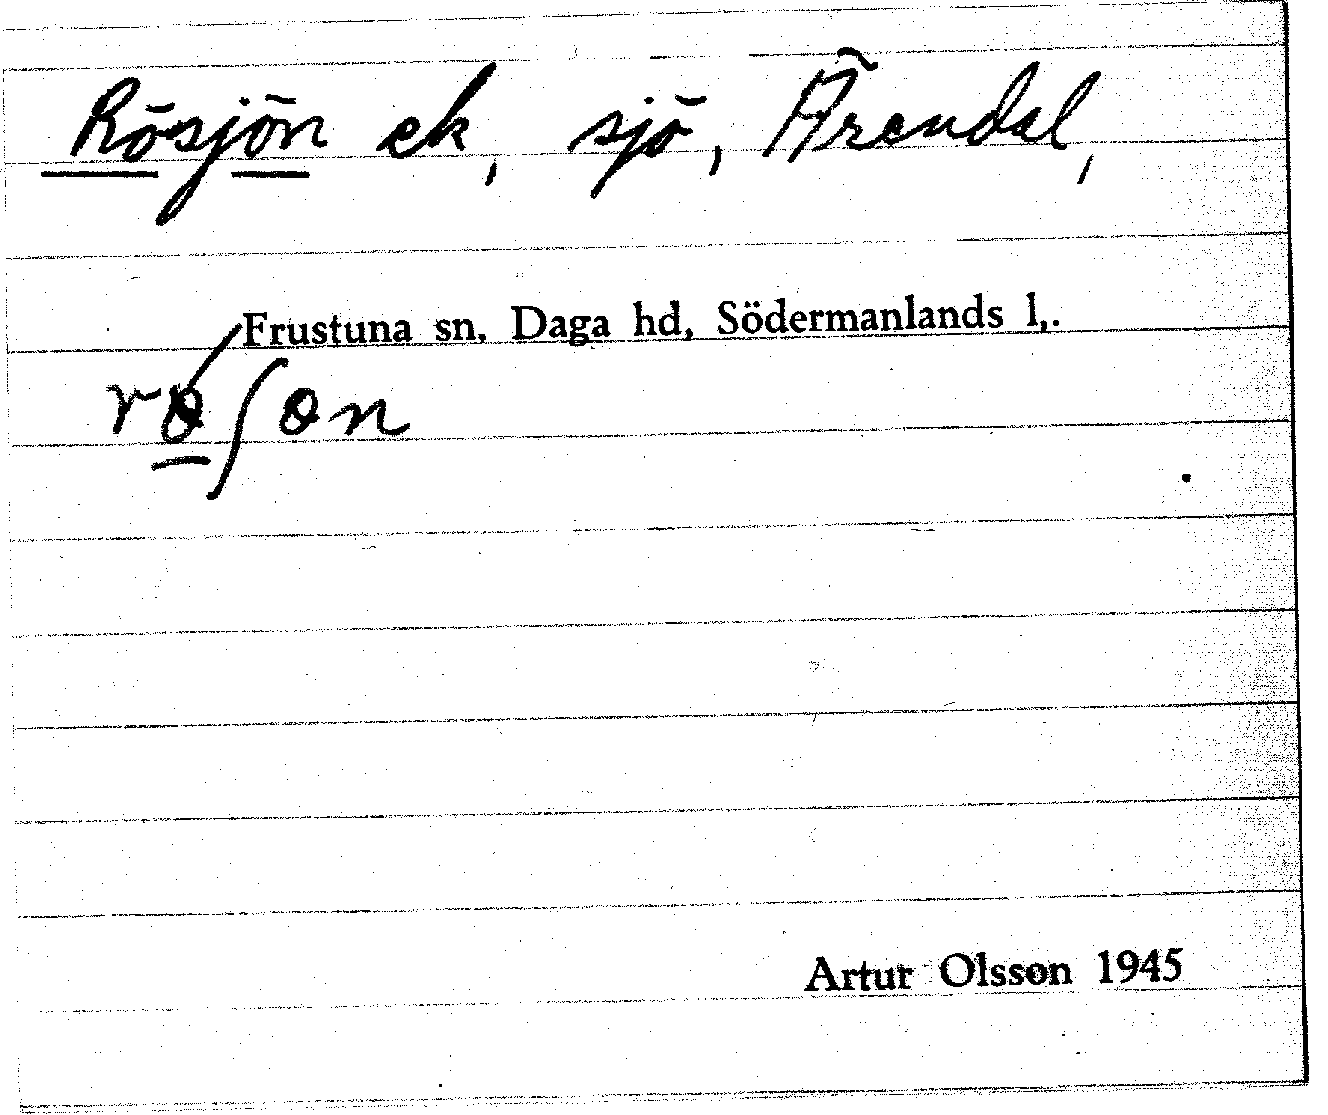 Rösjön ek, sjö, Ärendal,
Frustuna sn, Daga hd, Södermanlands l,.
röʃön
Artur Olsson 1945